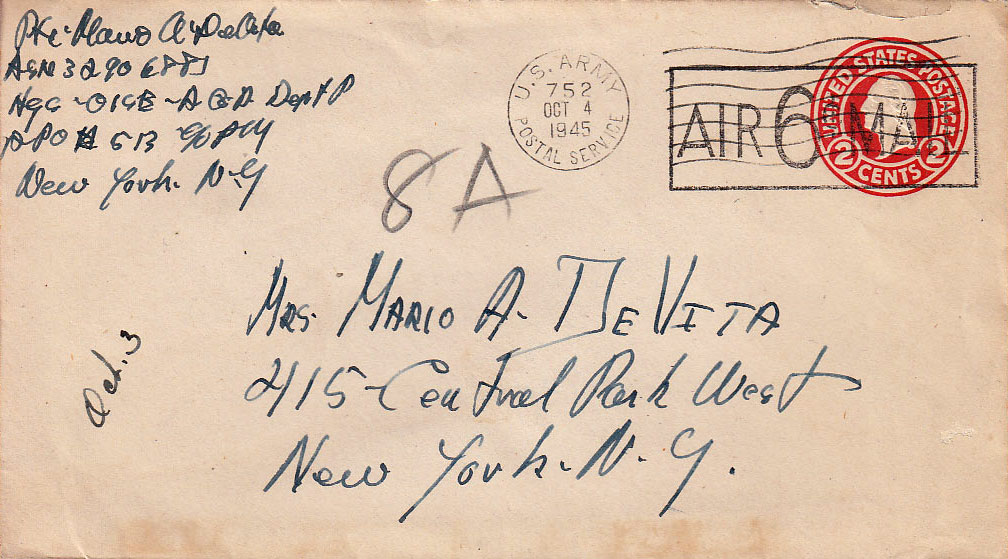 Pfc. Mario A. DeVita
ASN 32906885
Hqs - OISE - AGD Dept P
APO # 513 % PM
New York. N.Y
U.S. ARMY
752
OCT 4
1945
POSTAL SERVICE
AIR 6 MAIL
UNITED STATES POSTAGE
2 CENTS 2
8A
Oct. 3
Mrs. Mario A. DeVita
415 - Central Park West
New York. N.Y.